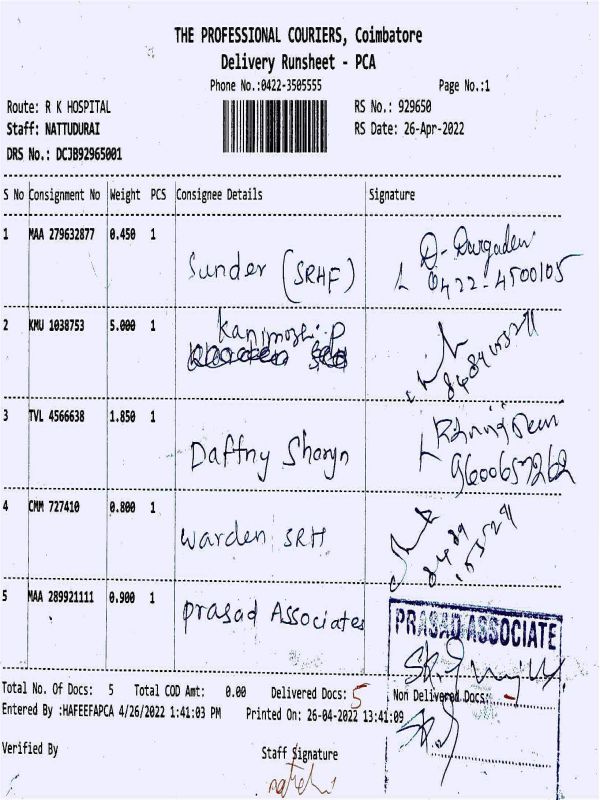 THE PROFESSIONAL COURIERS, Coimbatore
Delivery Runsheet - PCA
Phone No.:0422-3505555 Page No.:1
Route: R K HOSPITAL RS No.: 929650
Staff: NATTUDURAI RS Date: 26-Apr-2022
DRS No.: DCJB92965001
S No Consignment No Weight PCS Consignee Details Signature
1 MAA 279632877 0.450 1
Sunder (SRHF) 0422-4500105
2 KMU 1038753 5.000 1 Kanimozhi.P
3 TVL 4566638 1.850 1
Daffny Sharyn 9600657262
4 CMM 727410 0.800 1
Warden SRH
5 MAA 289921111 0.900 1
Prasad Associates PRASAD ASSOCIATE
Total No. Of Docs: 5 Total COD Amt: 0.00 Delivered Docs: 5 Non Delivered Docs: -
Entered By :HAFEEFAPCA 4/26/2022 1:41:03 PM Printed On: 26-04-2022 13:41:09
Verified By Staff Signature